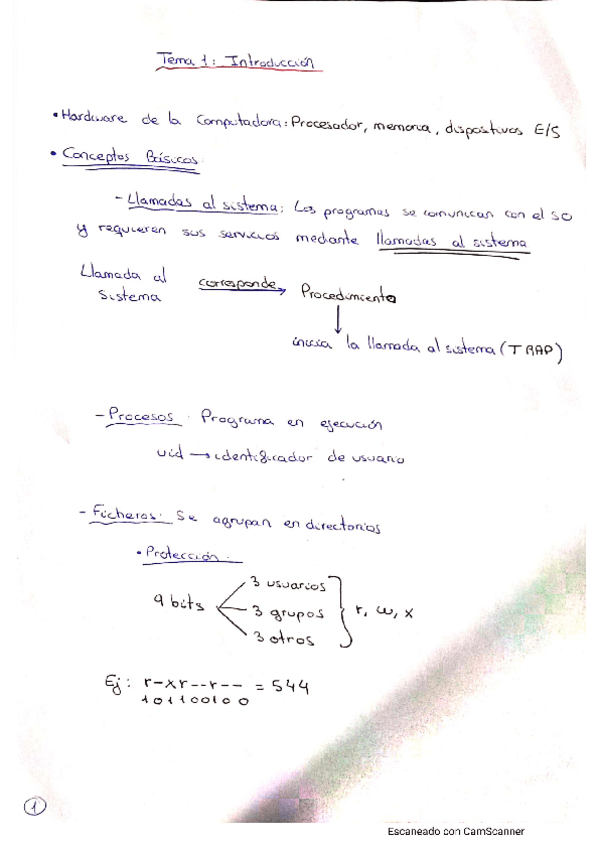 Tema 1: Introducción
• Hardware de la Computadora: Procesador, memoria, dispositivos E/S
• Conceptos Básicos
- Llamadas al sistema: Los programas se comunican con el SO
y requieren sus servicios mediante llamadas al sistema
Llamada al sistema corresponde → Procedimiento
↓
inicia la llamada al sistema (TRAP)
- Procesos: Programa en ejecución
uid → identificador de usuario
- Ficheros: Se agrupan en directorios
• Protección:
9 bits
3 usuarios
3 grupos } r, w, x
3 otros
Ej: r-xr--r-- = 544
101100100
1
Escaneado con CamScanner